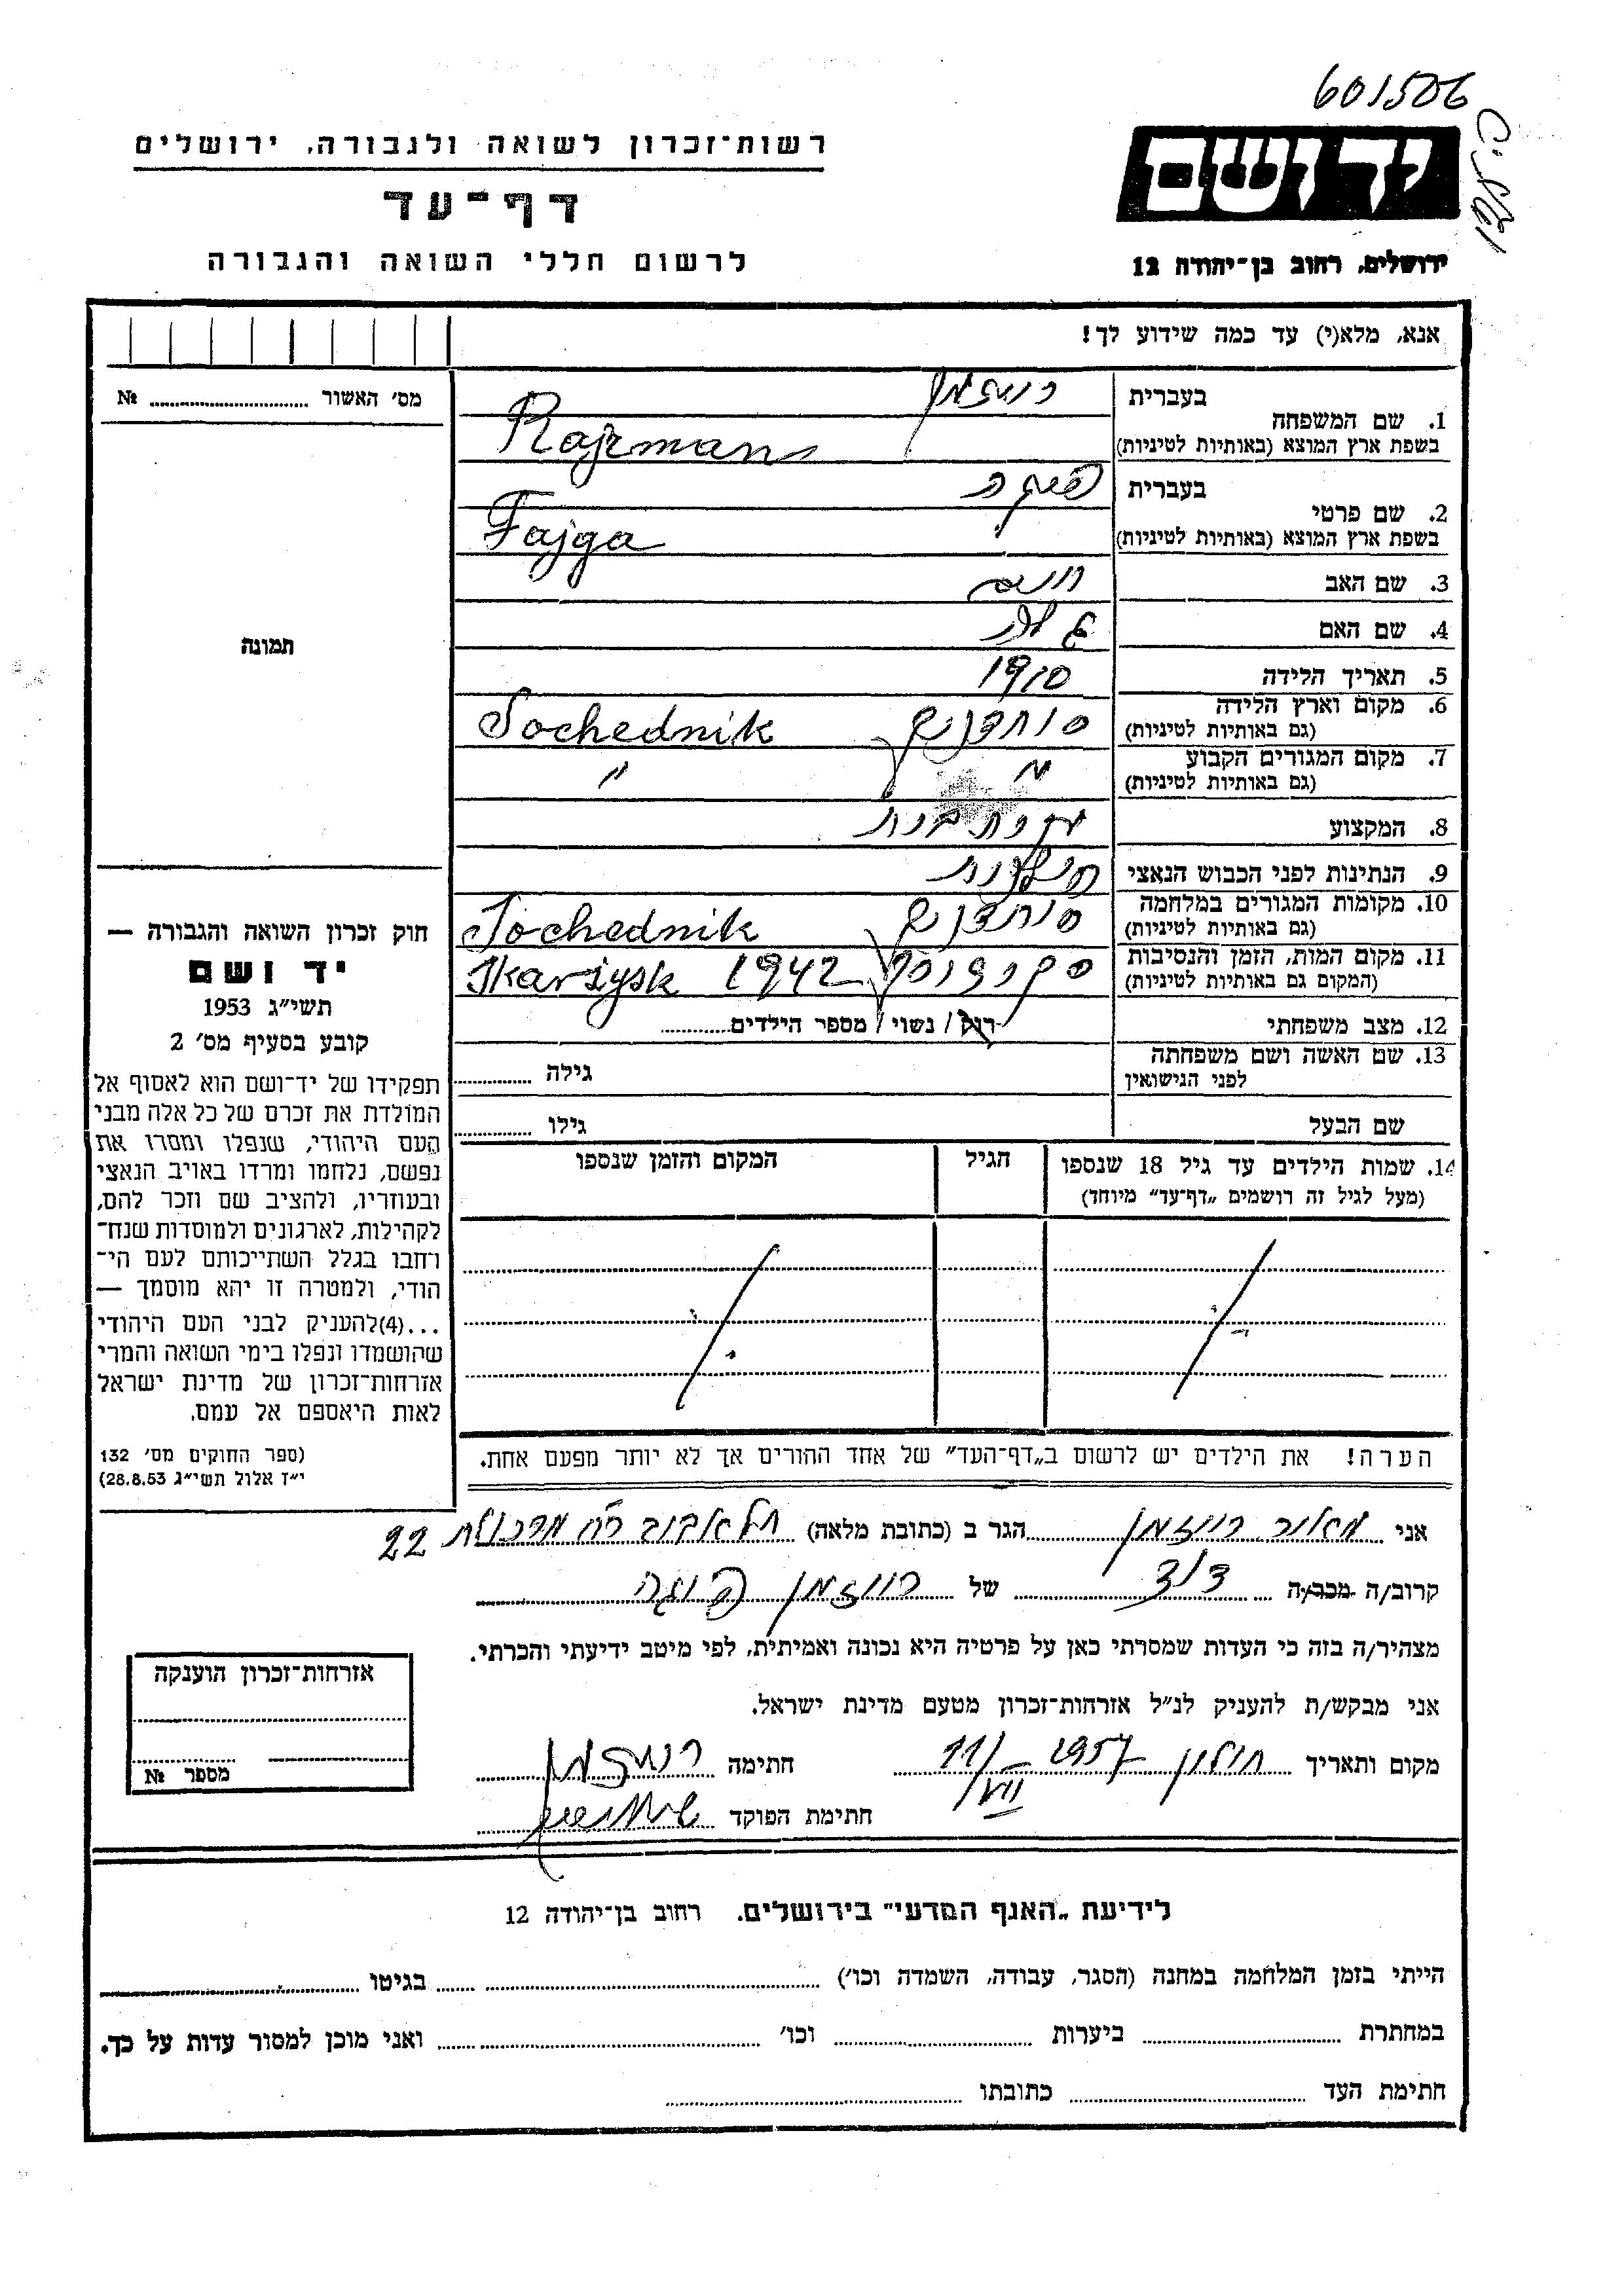 601506
רשות־זכרון לשואה ולגבורה, ירושלים
דף־עד
לרשום חללי השואה והגבורה
יד ושם
ירושלים, רחוב בן־יהודה 12
אנא, מלא(י) עד כמה שידוע לך!
מס׳ האשור № 
תמונה
1. שם המשפחה
בעברית רייזמן
בשפת ארץ המוצא (באותיות לטיניות) Rajzman
2. שם פרטי
בעברית פייגה
בשפת ארץ המוצא (באותיות לטיניות) Fajga
3. שם האב חיים
4. שם האם
5. תאריך הלידה 1910
6. מקום וארץ הלידה סוחדניק Sochednik
(גם באותיות לטיניות)
7. מקום המגורים הקבוע " "
(גם באותיות לטיניות)
8. המקצוע
9. הנתינות לפני הכבוש הנאצי
10. מקומות המגורים במלחמה סוחדניק Sochednik
(גם באותיות לטיניות)
11. מקום המות, הזמן והנסיבות Skarżysk 1942
(המקום גם באותיות לטיניות)
12. מצב משפחתי רוק / נשוי / מספר הילדים
13. שם האשה ושם משפחתה גילה
לפני הנישואין
שם הבעל גילו
14. שמות הילדים עד גיל 18 שנספו הגיל המקום והזמן שנספו
(מעל לגיל זה רושמים „דף־עד" מיוחד)
הערה! את הילדים יש לרשום ב„דף־העד" של אחד ההורים אך לא יותר מפעם אחת.
חוק זכרון השואה והגבורה —
יד ושם
תשי״ג 1953
קובע בסעיף מס׳ 2
תפקידו של יד־ושם הוא לאסוף אל
המולדת את זכרם של כל אלה מבני
העם היהודי, שנפלו ומסרו את
נפשם, נלחמו ומרדו באויב הנאצי
ובעוזריו, ולהציב שם וזכר להם,
לקהילות, לארגונים ולמוסדות שנח־
רחבו בגלל השתייכותם לעם הי־
הודי, ולמטרה זו יהא מוסמך —
...(4)להעניק לבני העם היהודי
שהושמדו ונפלו בימי השואה והמרי
אזרחות־זכרון של מדינת ישראל
לאות היאספם אל עמם.
(ספר החוקים מס׳ 132
י״ז אלול תשי״ג 28.8.53)
אני מאיר רייזמן הגר ב (כתובת מלאה) תל אביב רח 22
קרוב/ה מכר/ה דוד של רייזמן פייגה
מצהיר/ה בזה כי העדות שמסרתי כאן על פרטיה היא נכונה ואמיתית, לפי מיטב ידיעתי והכרתי.
אני מבקש/ת להעניק לנ״ל אזרחות־זכרון מטעם מדינת ישראל.
מקום ותאריך חולון 11/VII 1957 חתימה רייזמן
חתימת הפוקד
אזרחות־זכרון הוענקה
מספר №
לידיעת „האגף המדעי" בירושלים. רחוב בן־יהודה 12
הייתי בזמן המלחמה במחנה (הסגר, עבודה, השמדה וכו׳) בגיטו
במחתרת ביערות וכו׳ ואני מוכן למסור עדות על כך.
חתימת העד כתובתו